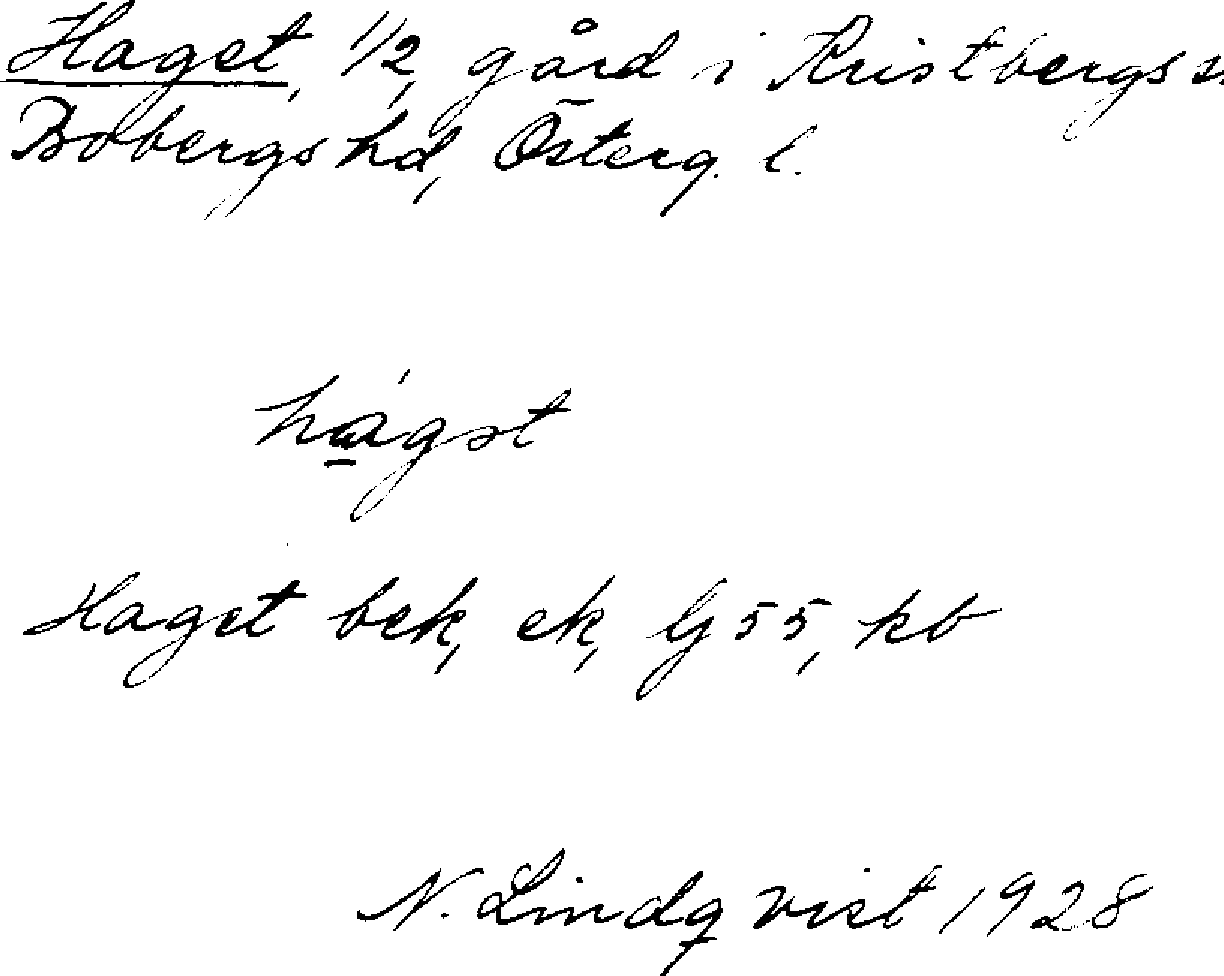 Haget, 1/2, gård i Kristbergs sn
Bobergs hd, Österg. l.
hágət
Haget bek, ek, Gj 55, kb
N. Lindqvist 1928